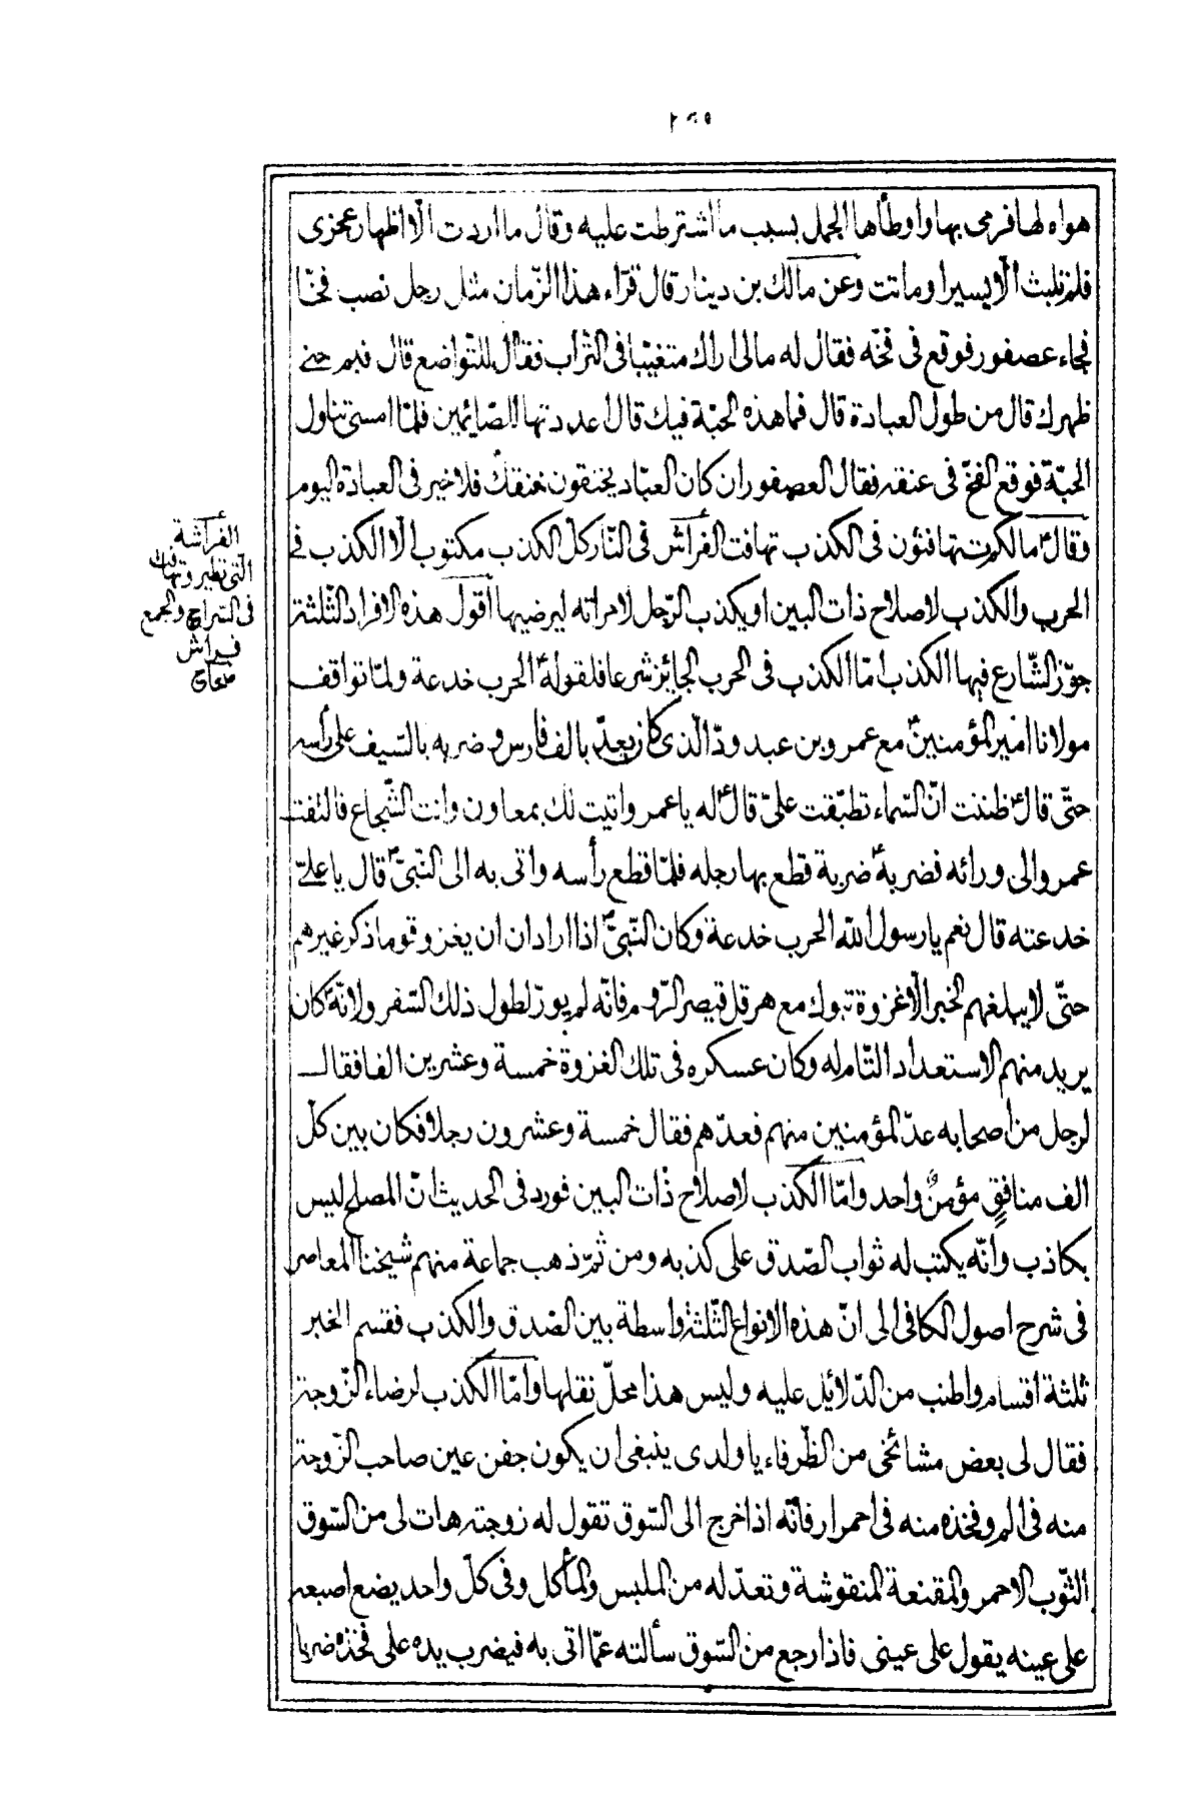 هواه لها فرمى بها واوطأها الجمل بسبب ما اشترطت عليه وقال ما اردت الّا اظهار عجزى
فلم تلبث الّا يسيرا وماتت وعن مالك بن دينار قال قرّاء هذا الزّمان مثل رجل نصب فخّا
فجاء عصفور فوقع فى فخّه فقال له مالى اراك متغيّبا فى التّراب فقال للتّواضع قال فبم حنى
ظهرك قال من طول العبادة قال فما هذه الحبّة فيك قال اعددتها للصّائمين فلمّا امسى تناول
الحبّة فوقع الفخّ فى عنقه فقال العصفور ان كان العبّاد يخنقون خنقك فلا خير فى العبادة اليوم
وقال ما لكم تتهافتون فى الكذب تهافت الفراش فى النّار كلّ الكذب مكتوب الّا الكذب فى
الحرب والكذب لاصلاح ذات البين او يكذب الرّجل لامراته ليرضيها اقول هذه الافراد الثّلثة
جوّز الشّارع فيها الكذب امّا الكذب فى الحرب الجائز شرعا فلقوله الحرب خدعة ولمّا تواقف
مولانا امير المؤمنين مع عمرو بن عبد ودّ الّذى كان يعدّ بالف فارس وضربه بالسّيف على رأسه
حتّى قال ظننت انّ السّماء تطبّقت علىّ قال له يا عمرو اتيت لك بمعاون وانت الشّجاع فالتفت
عمرو الى ورائه فضربه ضربة قطع بها رجله فلمّا قطع رأسه واتى به الى النّبىّ قال يا علىّ
خدعته قال نعم يا رسول اللّه الحرب خدعة وكان النّبىّ اذا اراد ان يغزو قوما ذكر غيرهم
حتّى لا يبلغهم الخبر الّا غزوة تبوك مع هرقل قيصر الرّوم فانّه لم يورّ لطول ذلك السّفر ولانّه كان
يريد منهم الاستعداد التّام له وكان عسكره فى تلك الغزوة خمسة وعشرين الفا فقال
لرجل من اصحابه عدّ المؤمنين منهم فعدّهم فقال خمسة وعشرون رجلا فكان بين كلّ
الف منافقٍ مؤمنٌ واحد وامّا الكذب لاصلاح ذات البين فورد فى الحديث انّ المصلح ليس
بكاذب وانّه يكتب له ثواب الصّدق على كذبه ومن ثمّ ذهب جماعة منهم شيخنا المعاصر
فى شرح اصول الكافى الى انّ هذه الانواع الثّلثة واسطة بين الصّدق والكذب فقسم الخبر
ثلثة اقسام واطنب من الدّلائل عليه وليس هذا محلّ نقلها وامّا الكذب لرضاء الزّوجة
فقال لى بعض مشائخى من الظّرفاء يا ولدى ينبغى ان يكون جفن عين صاحب الزّوجة
منه فى الم وفخذه منه فى احمرار فانّه اذا خرج الى السّوق تقول له زوجته هات لى من السّوق
الثّوب الاحمر والمقنعة المنقوشة وتعدّ له من الملبس والمأكل وفى كلّ واحد يضع اصبعه
على عينه يقول على عينى فاذا رجع من السّوق سألته عمّا اتى به فيضرب يده على فخذه ضربا
الفراشة
الّتى تطير وتهافت
فى السّراج والجمع
فراش
صحاح